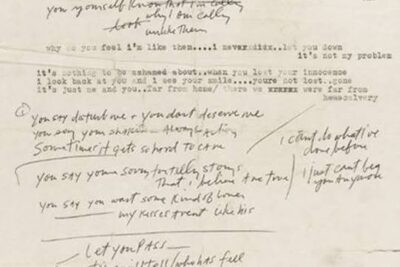 you yourself know that I'm calling
look why I am calling
unlike them
why do you feel i'm like them....i never didxx..let you down
it's not my problem
it's nothing to be ashamed about..when you lost your innocence
i look back at you and i see your smile....youre not lost..gone
it's just me and you..far from home/ there we xrxrxx were far from
you say disturb me + you dont deserve me
you say your
Sometimes it gets so hard to care
you say your sorry for telling storys
that i believe are true
you say you want some kind of lover
my kisses arent like his
i cant do what i've
done before
I just cant beg
you Anymore
Let you PASS
who has fell